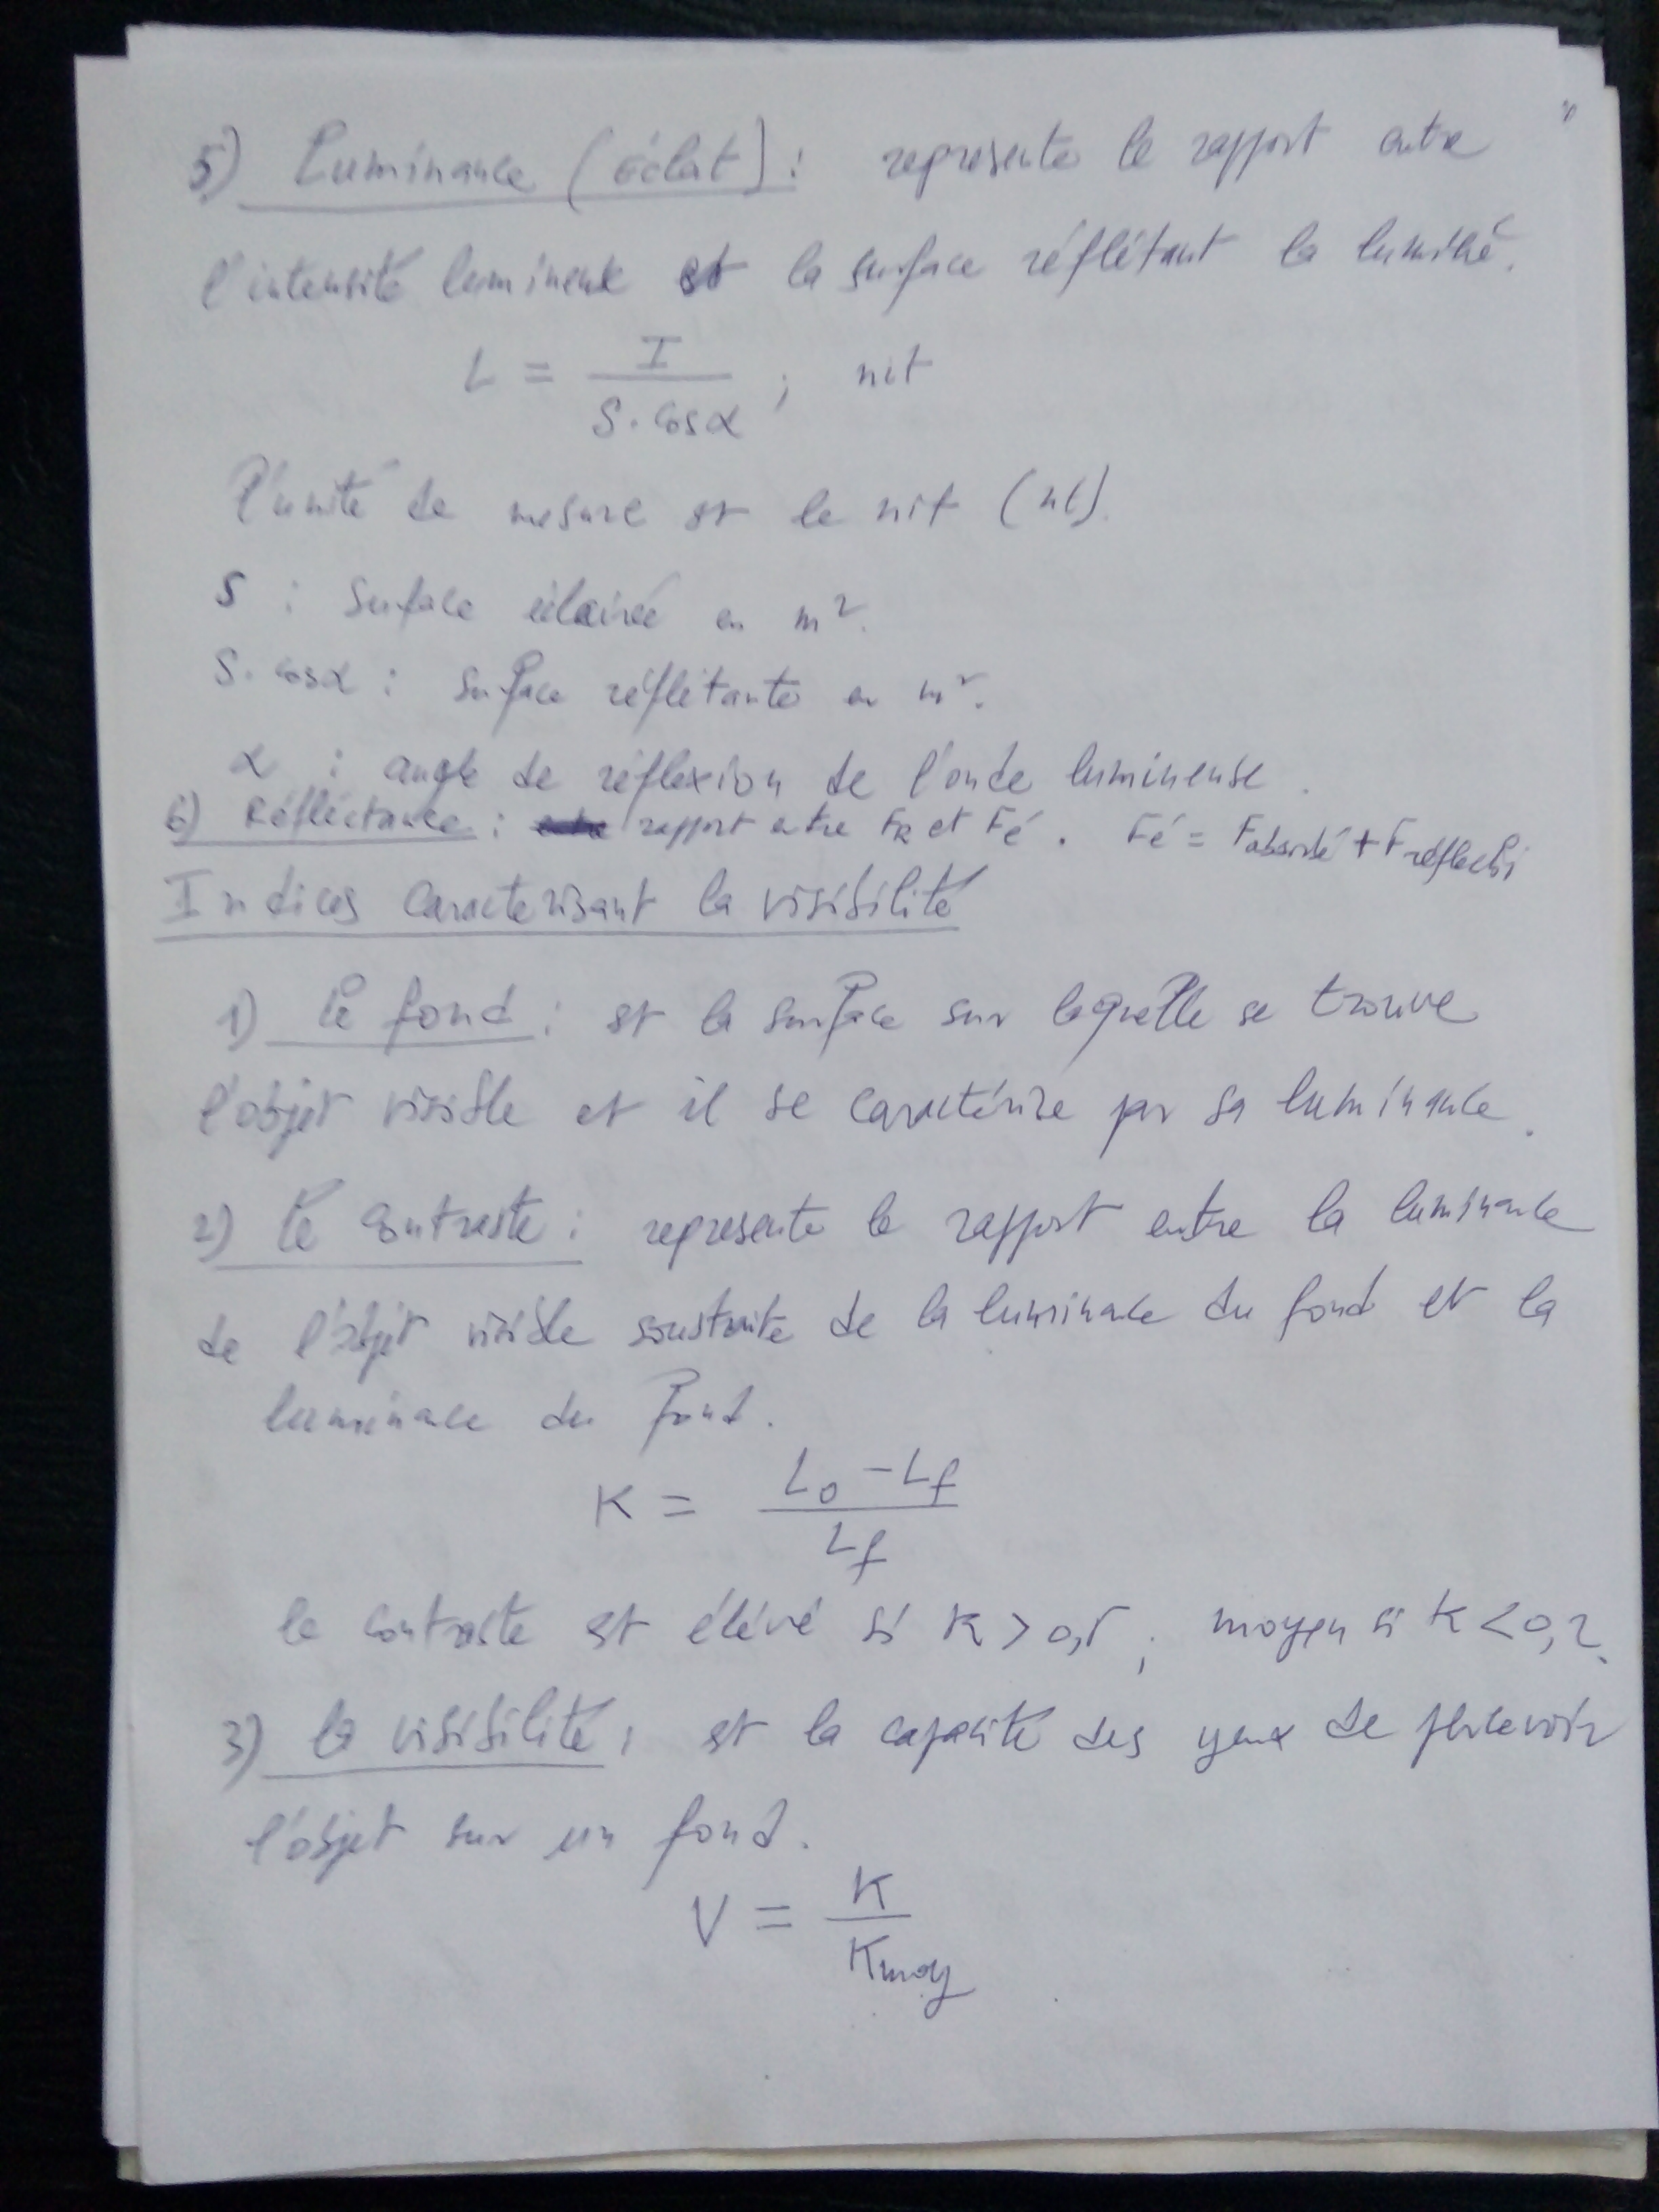 5) Luminance (éclat) : represente le rapport entre
l'intensité lumineux et la surface réflétant la luminé.
L = I / (S. cosα) ; nit
l'unité de mesure est le nit (nt).
S : surface éclairée en m².
S. cosα : surface réflétante en m².
α : angle de réflexion de l'onde lumineuse.
6) Réfléctance : rapport entre FR et Fé. Fé = Fabsorbé + Fréflechi
Indices caracterisant la visibilité
1) le fond : est la surface sur laquelle se trouve
l'objet visible et il se caractérise par sa luminance.
2) le contraste : represente le rapport entre la luminance
de l'objet visible soustraite de la luminance du fond et la
luminance du fond.
K = (Lo - Lf) / Lf
le contraste est élévé si K > 0,5 ; moyen si K < 0,2.
3) la visibilité : est la capacité des yeux de percevoir
l'objet sur un fond.
V = K / Kmoy